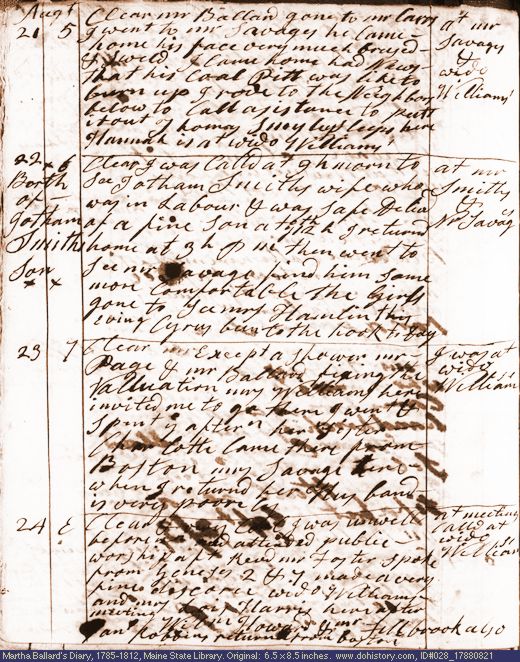 Augst
21 5 Clear mr Ballard gone to mr Carrs at mr
I went to mr Savages he came Savages
home his face very much bruised &
& sweld I Came home had News wido
that his Coal Pitt was like to Williams
burn up I rode to the Neighbors
below to Call asistance to putt
it out Thomas Smyley sleeps here
Hannah is at wido Williams
22 6 Clear I was Calld at 9 h morn to at mr
Birth See Jotham Smiths wife who Smiths
of was in Labour & was safe Delivd &
Jotham of a fine Son at 12 h I returnd Mr Savag
Smiths home at 3 h P m then went to
Son see mr Savage find him some
x x more Comfortable the Girls
gone to See mrs Hamlin this
Evening Cyrus been to the hook to day
23 7 Clear Except a shower mr I was at
Page & mr Ballard fixing the wido
Valluation mrs Williams here Williams
invited me to go there I went &
Spent ye aftern
Charlotte Came there from
Boston mrs Savage here
when I returnd her Husband
is very poorly
24 E Clear I was unwell at meeting
before attended public Calld at
worship aft revd mr Foster spoke wido
from Genesis 2 & made a very Williams
fine discorse wido Williams
and mrs Harris here after
meeting Wilm Howard & mr Fillbrook also
Jams Robbins returnd from Boston
Martha Ballard's Diary, 1785-1812, Maine State Library. Original: 6.5 x 8.5 inches. www.dohistory.org, ID#028_17880821